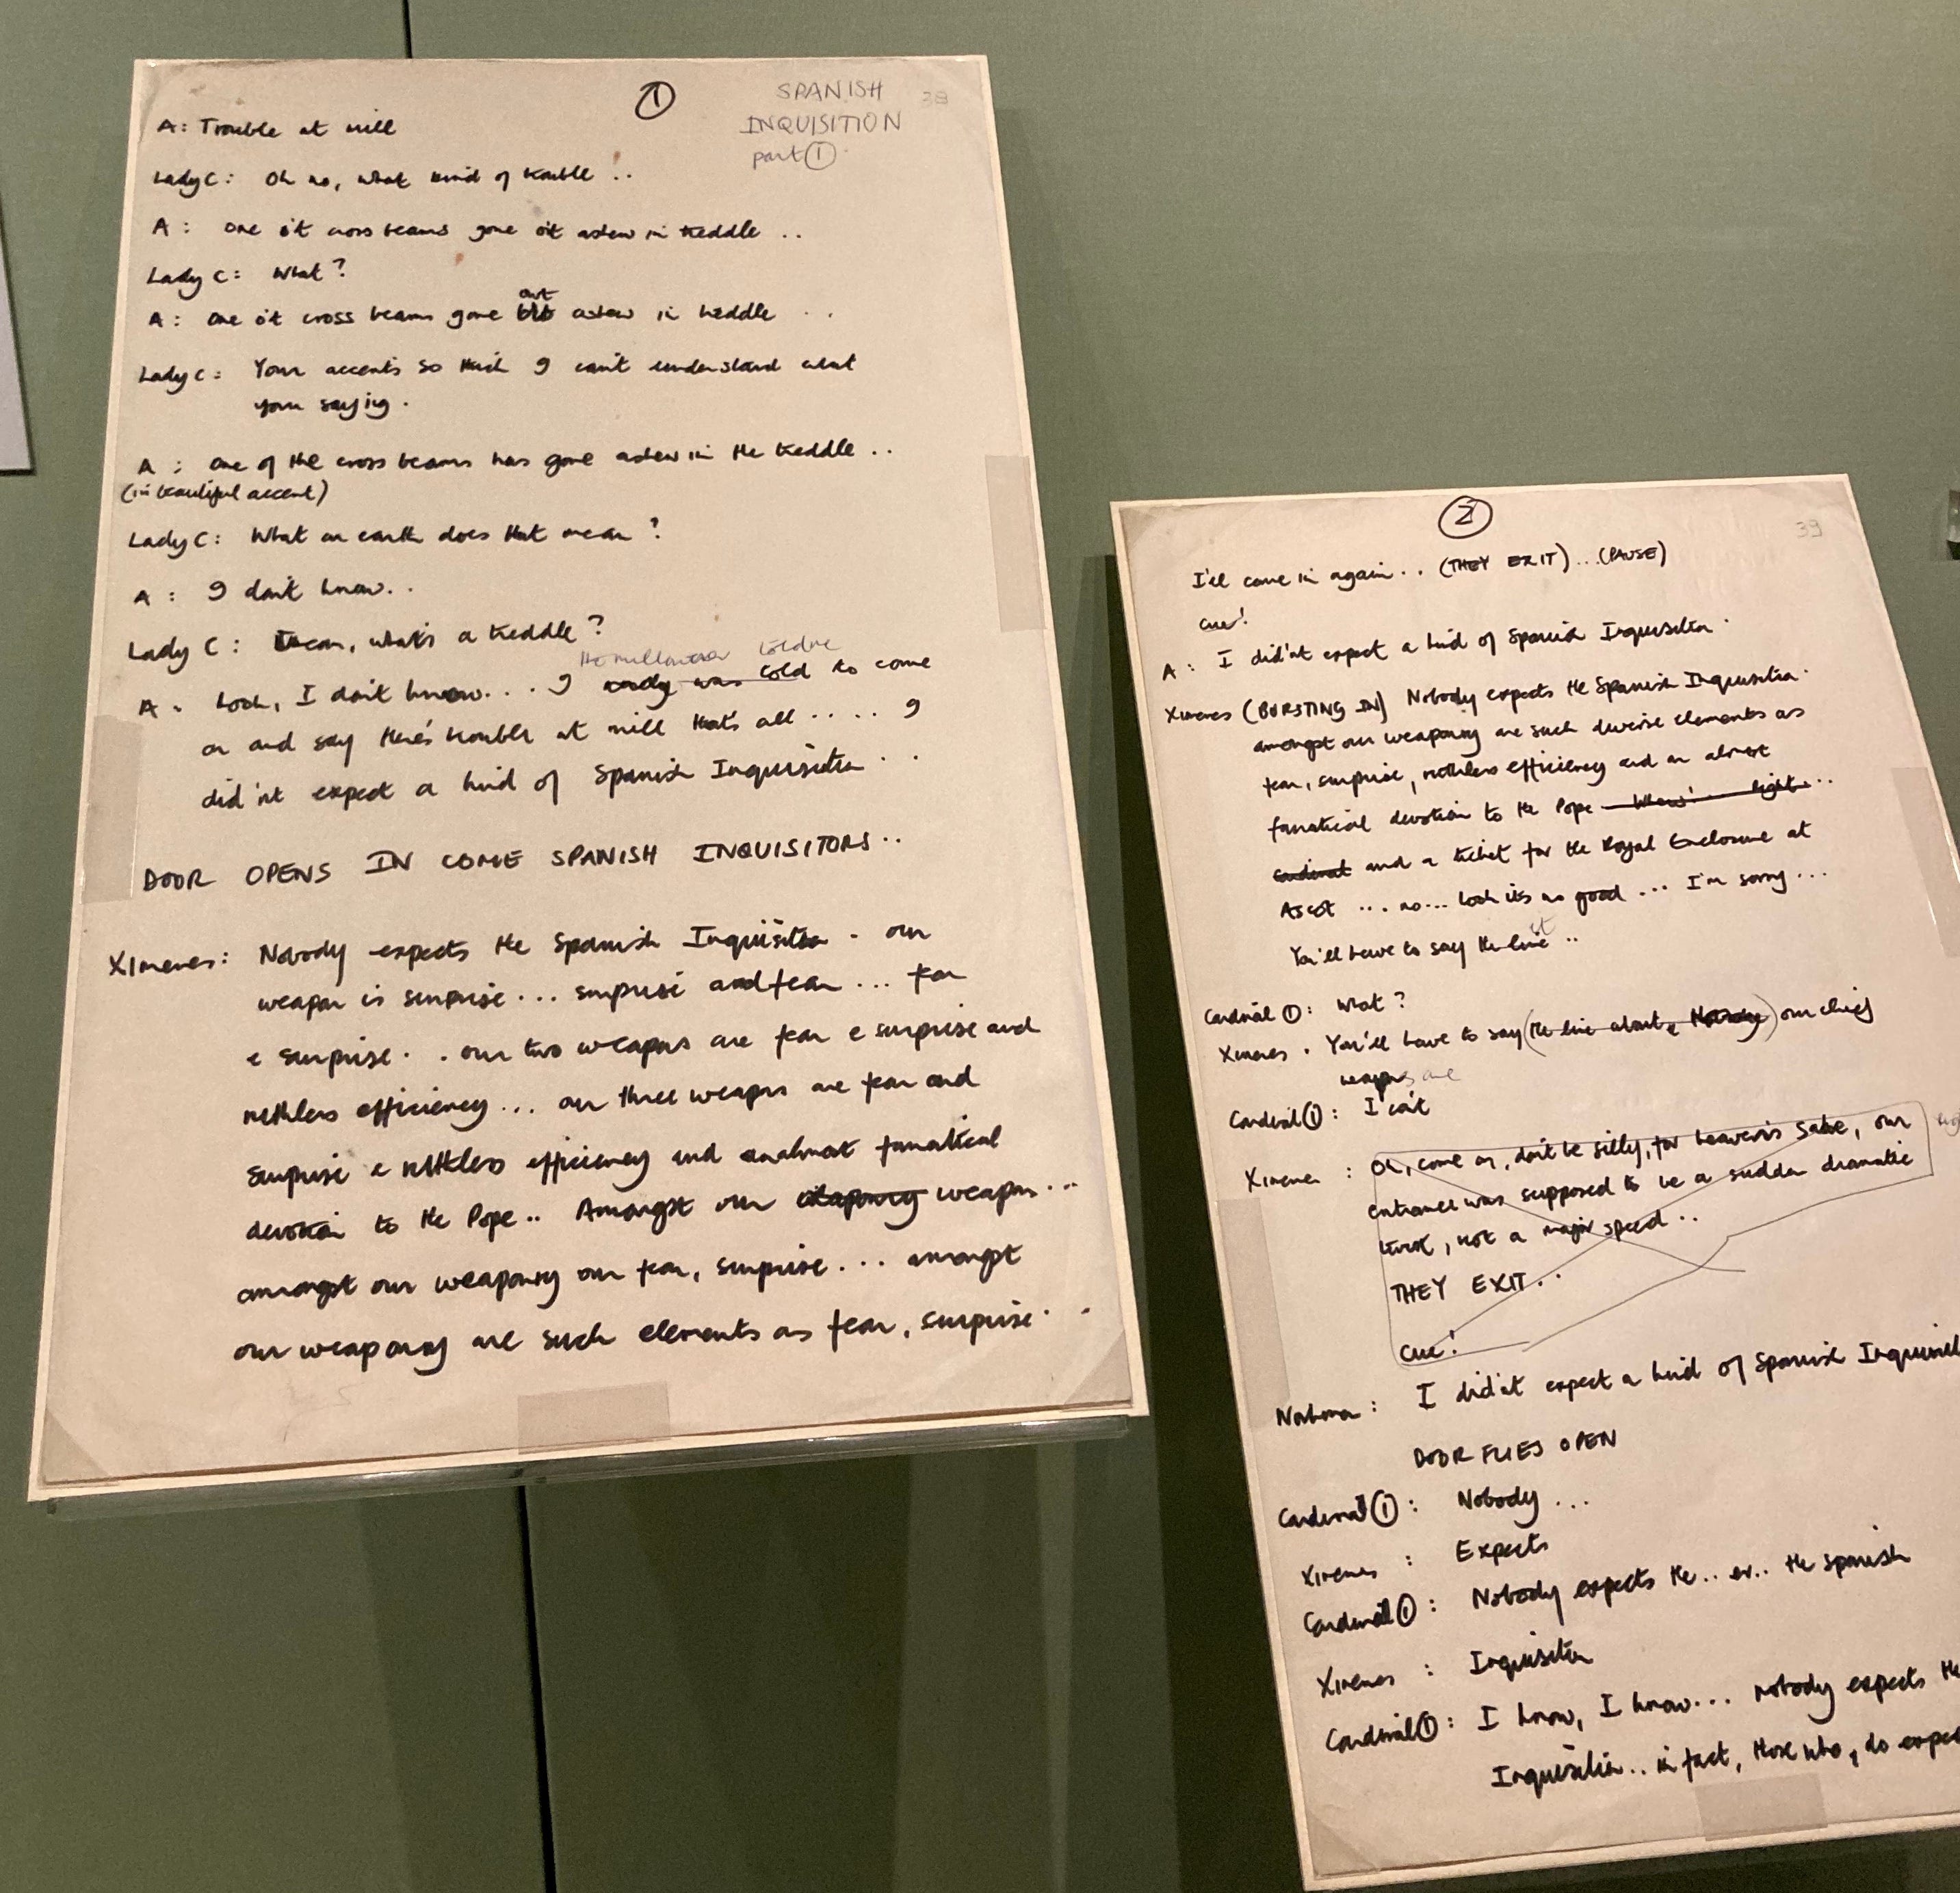 ①
SPANISH 38
INQUISITION
part ①
A: Trouble at mill
Lady C: Oh no, what kind of trouble ..
A: one o't cross beams gone o't askew in treddle ..
Lady C: What?
out
A: one o't cross beams gone askew in treddle ..
Lady C: Your accents so thick I can't understand what
your saying.
A: one of the cross beams has gone askew in the treddle ..
(in beautiful accent)
Lady C: What on earth does that mean?
A: I don't know..
Lady C: I mean, what's a treddle?
told me
A. Look, I don't know... I only was told to come
on and say there's trouble at mill that's all .... I
did'nt expect a kind of Spanish Inquisition ..
DOOR OPENS IN COME SPANISH INQUISITORS..
Ximenes: Nobody expects the Spanish Inquisition - our
weapon is surprise... surprise and fear... fear
& surprise. . our two weapons are fear & surprise and
ruthless efficiency... our three weapons are fear and
surprise & ruthless efficiency and an almost fanatical
devotion to the Pope.. Amongst our weaponry weapons...
amongst our weaponry our fear, surprise... amongst
our weaponry are such elements as fear, surprise..
② 39
I'll come in again.. (THEY EXIT)...(PAUSE)
cue!
A: I did'nt expect a kind of Spanish Inquisition.
Ximenes (BURSTING IN) Nobody expects the Spanish Inquisition.
amongst our weaponry are such diverse elements as
fear, surprise, ruthless efficiency and an almost
fanatical devotion to the Pope right...
and a ticket for the Royal Enclosure at
Ascot .... no... look it's no good ... I'm sorry...
it
You'll have to say the line ..
Cardinal ①: What?
Ximenes. You'll have to say (the line about ) our chief
weapons are
Cardinal ①: I can't
Ximenes: Oh, come on, don't be silly, for heaven's sake, our
entrance was supposed to be a sudden dramatic
, not a major speech..
THEY EXIT..
Cue!
Northerner: I did'nt expect a kind of Spanish
DOOR FLIES OPEN
Cardinal ①: Nobody ...
Ximenes: Expects
Cardinal ①: Nobody expects the.. er.. the Spanish
Ximenes: Inquisition
Cardinal ①: I know, I know... nobody expects the
Inquisition.. in fact, those who, do